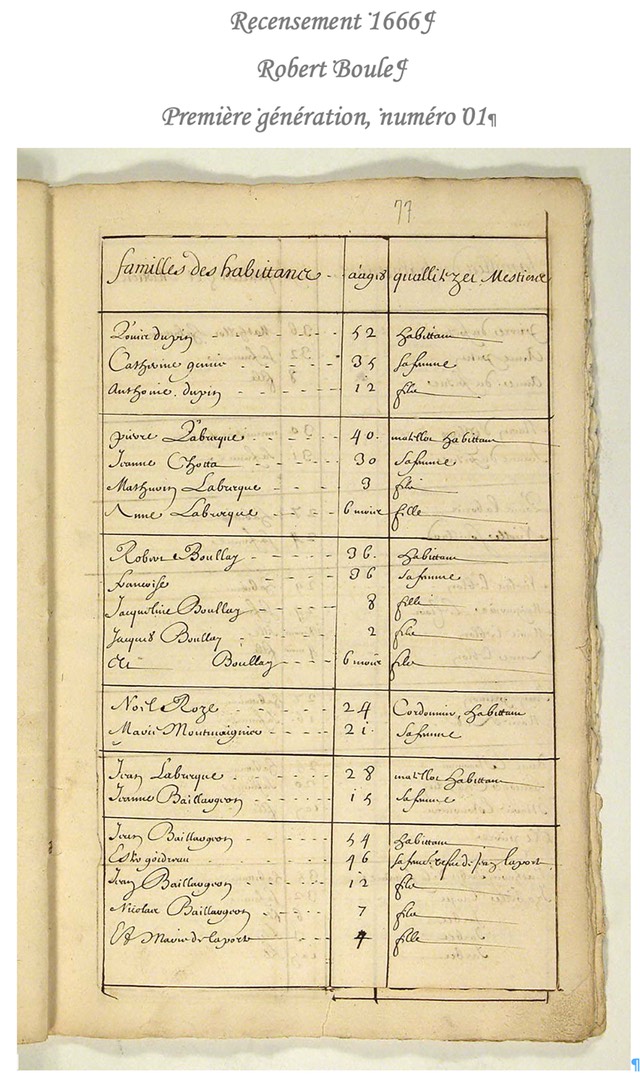 Recensement 1666¶
Robert Boule¶
Première génération, numéro 01¶
77
familles des habittance aagés quallitez et Mestiers
Louis dupin 52 habittant
Catherine 35 safemme
Anthoine dupin 12 filz
pierre Labrecque 40 matellot habittant
Jeanne Chotta 30 safemme
Mathurin Labrecque 3 filz
Anne Labrecque 6 mois fille
Robert Boullay 36 habittant
francoise 36 safemme
Jacqueline Boullay 8 fille
Jacques Boullay 2 filz
Boullay 6 mois filz
Noël Roze 24 Cordonnier, habittant
Marie Montmaignier 21 safemme
Jean Labrecque 28 matellot habittant
Jeanne Baillargeon 15 safemme
Jean Baillargeon 54 habittant
Ester goidreau 46 safemme de Jean laport
Jean Baillargeon 12 filz
Nicolas Baillargeon 7 filz
Et Marie de laporte 4 fille